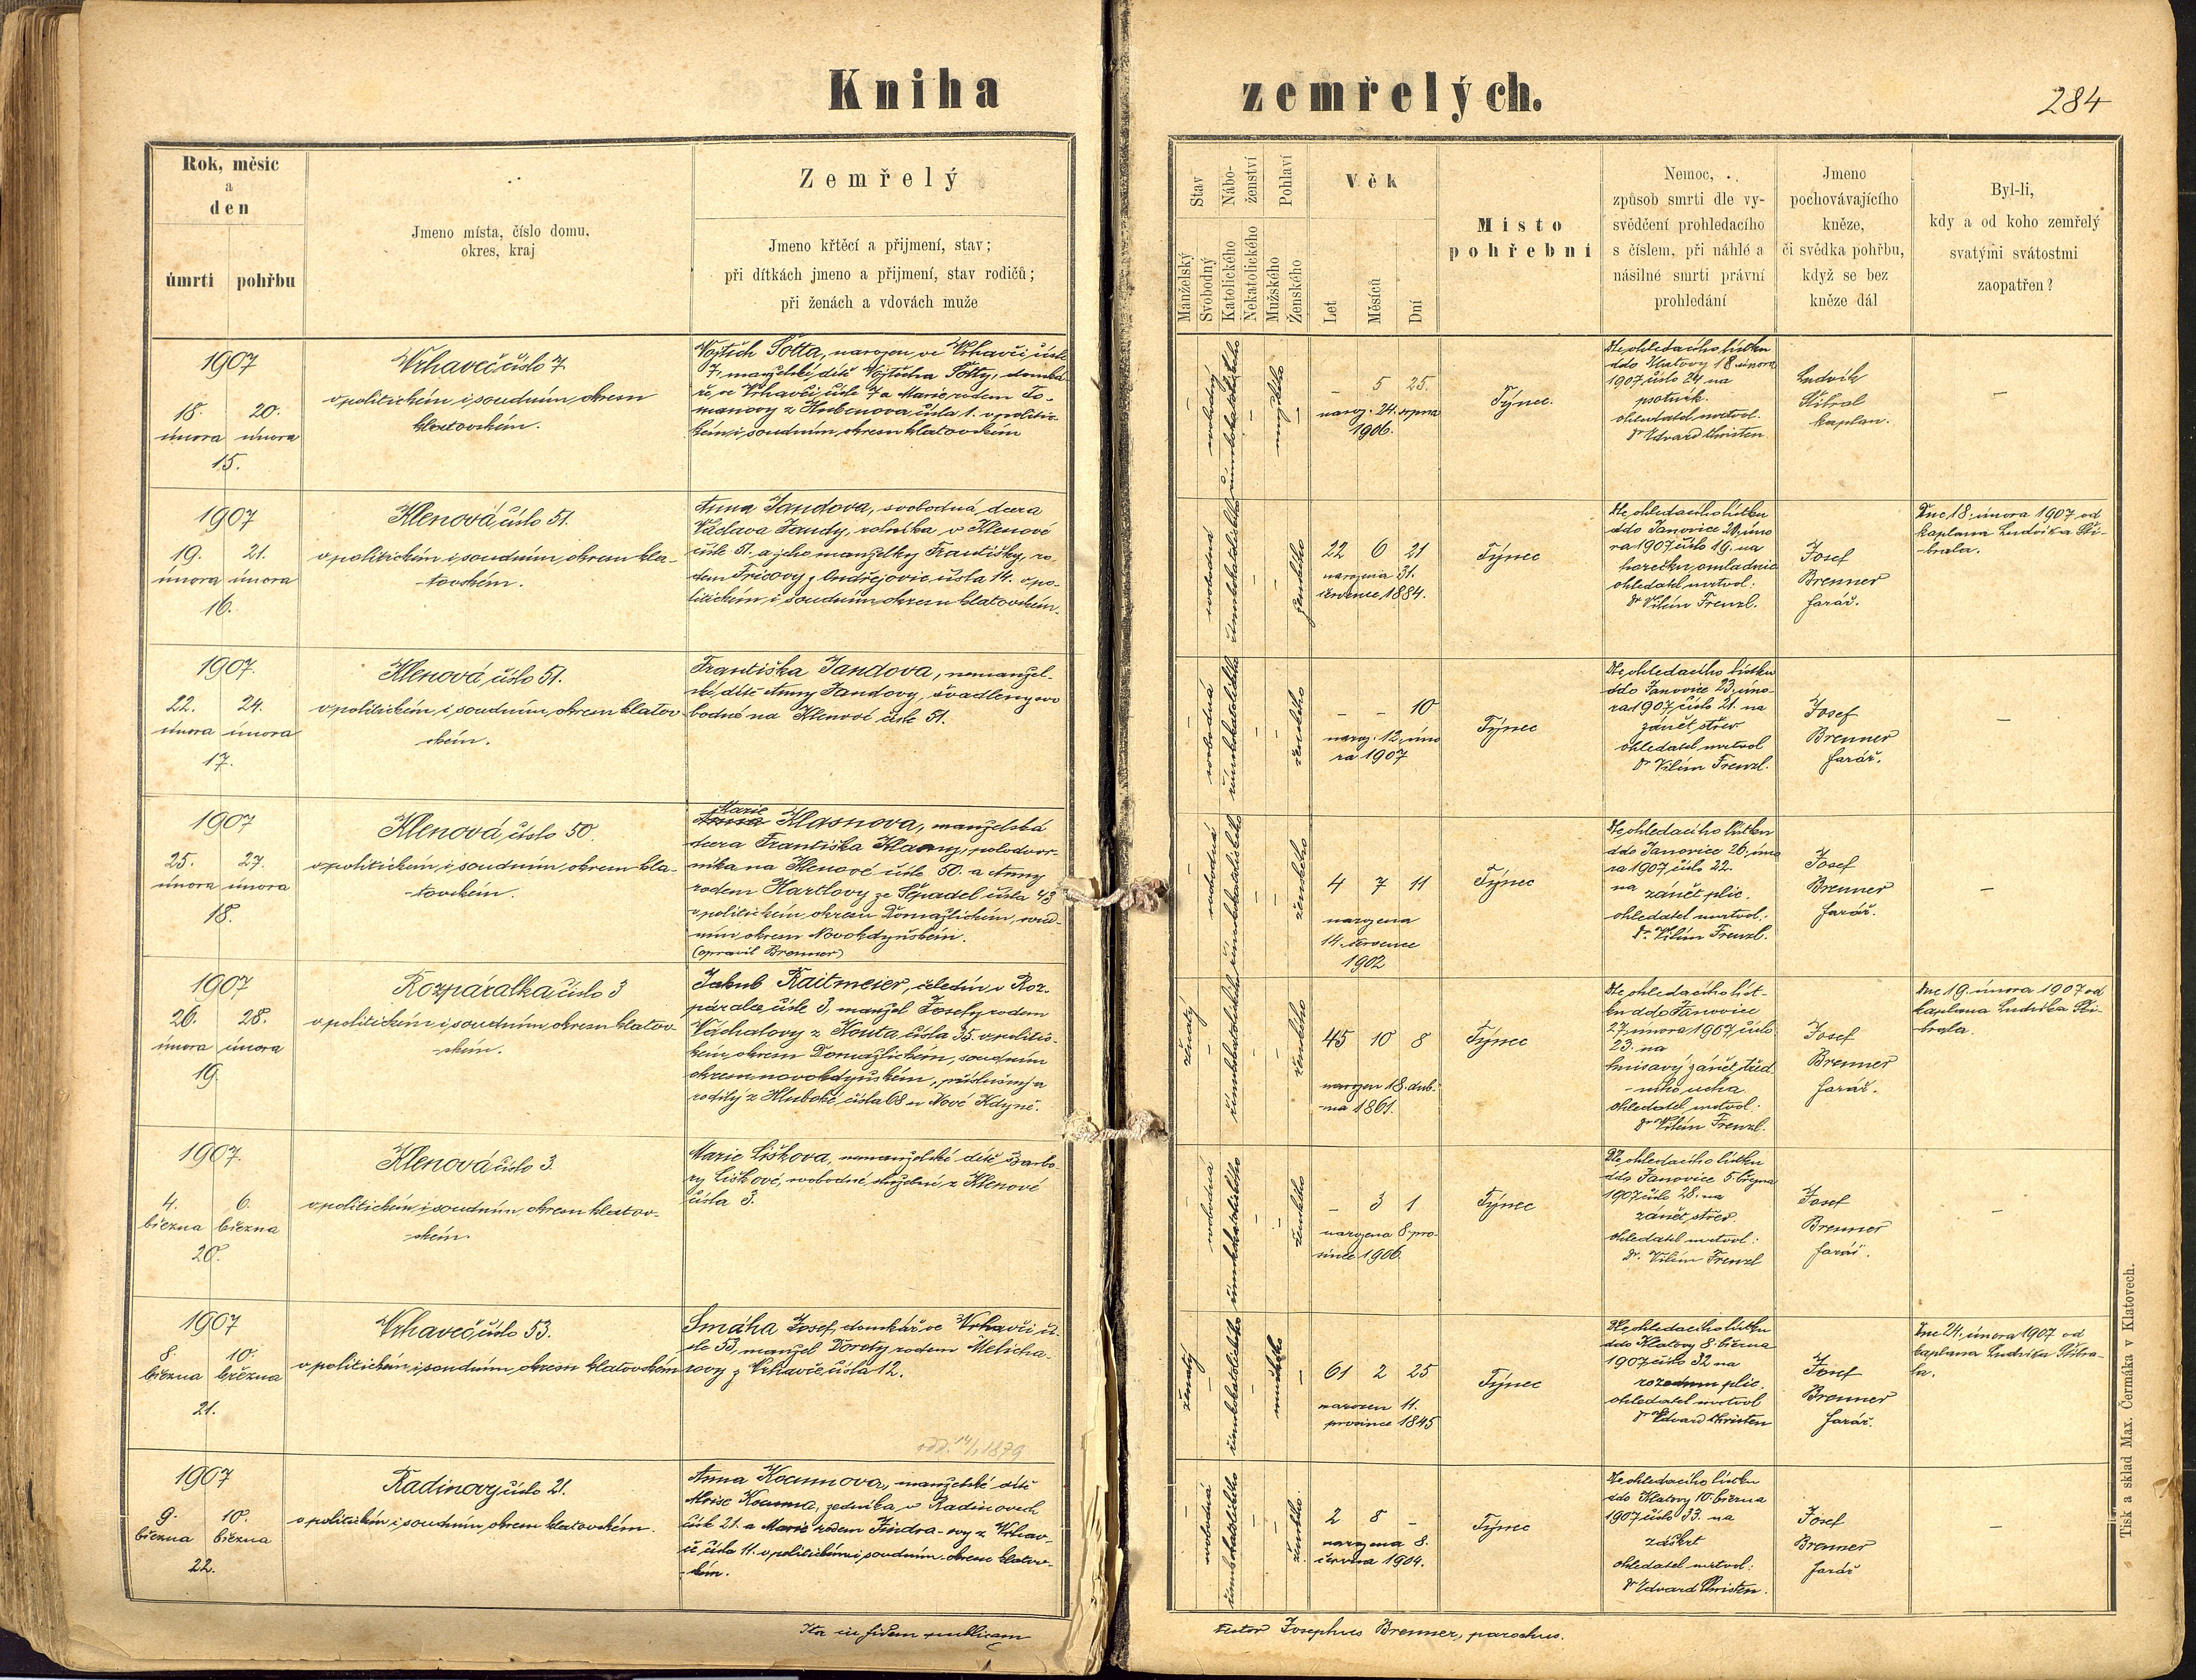 Kniha
zemřelých.
284
Rok, měsíc
a
den
úmrtí
pohřbu
Jmeno místa, číslo domu,
okres, kraj
Zemřelý
Jmeno křtěcí a přijmení, stav;
při dítkách jmeno a přijmení, stav rodičů;
při ženách a vdovách muže
Stav
Manželský
Svobodný
Nábo-
ženství
Katolického
Nekatolického
Pohlaví
Mužského
Ženského
Věk
Let
Měsíců
Dní
Místo
pohřební
Nemoc,
způsob smrti dle vy-
svědčení prohledacího
s číslem, při náhlé a
násilné smrti právní
prohledání
Jmeno
pochovávajícího
kněze,
či svědka pohřbu,
když se bez
kněze dál
Byl-li,
kdy a od koho zemřelý
svatými svátostmi
zaopatřen?
1907
18. 20.
února února
15.
Vrhaveč číslo 7
v politickém i soudním okresu
klatovském.
Vojtěch Šotta, narozen ve Vrhavči čísle
7, manželské dítě Vojtěcha Šotty, domká-
ře, ve Vrhavči čísle 7 a Marie, rodem To-
manovy z Hrubenova čísla 1. v politic-
kém i soudním okresu klatovském
svobodný
římskokatolického
mužského
– 5 25.
naroz. 24. srpna
1906.
Týnec.
Dle ohledacího lístku
ddo Klatovy 18 února
1907 číslo 24 na
psotník.
ohledatel mrtvol.
Dr Edvard Christen
Ludvík
Stibral
kaplan.
–
1907
19. 21.
února února
16.
Klenová číslo 51.
v politickém i soudním okresu kla-
-tovském.
Anna Jandova, svobodná dcera
Václava Jandy, rolníka v Klenové
čísle 51. a jeho manželky Františky, ro-
dem Fricovy z Ondřejovic čísla 14. v po-
litickém i soudním okresu klatovském.
svobodná
římskokatolického
ženského
22 6 21
narozena 31.
července 1884.
Týnec
Dle ohledacího lístku
ddo Janovice 20. úno
ra 1907 číslo 19. na
horečku omladnic
ohledatel mrtvol:
Dr Vilém Frenzl.
Josef
Brenner
farář.
Dne 18. února 1907 od
kaplana Ludvíka Sti-
brala.
1907.
22. 24.
února února
17.
Klenová, číslo 51.
v politickém i soudním okresu klatov
ském.
Františka Jandova, nemanžel-
ské dítě Anny Jandovy, švadleny svo
bodné na Klenové čísle 51.
svobodná
římskokatolického
ženského
– – 10
naroz. 12. úno
ra 1907
Týnec
Dle ohledacího lístku
ddo Janovice 23. úno-
ra 1907 číslo 21. na
zánět střev
ohledatel mrtvol
Dr Vilém Frenzl.
Josef
Brenner
farář.
–
1907
25. 27.
února února
18.
Klenová, číslo 50.
v politickém i soudním okresu kla-
-tovském.
Marie
Anna Klasnova, manželská
dcera Františka Klasny, polodvor-
níka na Klenové čísle 50. a Anny
rodem Hartlovy ze Spádel čísla 43
v politickém okresu Domažlickém, soud-
ním okresu Novokdyňském.
(opravil Brenner)
svobodná
římskokatolického
ženského
4 7 11
narozena
14. července
1902
Týnec
Dle ohledacího lístku
ddo Janovice 26. úno
ra 1907 číslo 22.
na zánět plic.
ohledatel mrtvol:
Dr. Vilém Frenzl.
Josef
Brenner
farář.
–
1907
26. 28.
února února
19.
Rozpáralka číslo 3
v politickém i soudním okresu klatov
ském.
Jakub Raitmeier, čeledín v Roz-
páralce čísle 3, manžel Josefy rodem
Váchalovy z Kouta čísla 35. v politic-
kém okresu Domažlickém, soudním
okresu novokdyňském, příslušný a
rodilý z Hluboké čísla 68 u Nové Kdyně.
ženatý
římskokatolického
ženského
45 10 8
narozen 18. dub-
-na 1861.
Týnec
Dle ohledacího líst-
ku ddo Janovice
27. února 1907 číslo
23. na
hnisavý zánět střed
-ního ucha
ohledatel mrtvol:
Dr Vilém Frenzl.
Josef
Brenner
farář.
Dne 19. února 1907 od
kaplana Ludvíka Sti-
brala.
1907
4. 6.
března března
20.
Klenová číslo 3.
v politickém i soudním okresu klatov-
-ském.
Marie Liškova, nemanželské dítě Barbo
ry Liškové, svobodné služebné z Klenové
čísla 3.
svobodná
římskokatolického
ženského
– 3 1
narozena 8. pro-
since 1906.
Týnec
Dle ohledacího lístku
ddo Janovice 5. března
1907 číslo 28. na
zánět střev.
ohledatel mrtvol:
Dr. Vilém Frenzl
Josef
Brenner
farář.
–
1907
8. 10.
března března
21.
Vrhaveč číslo 53.
v politickém i soudním okresu klatovském
Smáha Josef, domkář ve Vrhavči čí-
sle 53, manžel Doroty rodem Melicha-
rovy z Vrhavče čísla 12.
odd. 14/1 1879
ženatý
římskokatolického
mužského
61 2 25
narozen 11.
prosince 1845
Týnec
Dle ohledacího lístku
ddo Klatovy 8. března
1907 číslo 32 na
rozedmu plic.
ohledatel mrtvol
Dr Edvard Christen
Josef
Brenner
farář.
Dne 24. února 1907 od
kaplana Ludvíka Stibra-
la.
1907
9. 10.
března března
22.
Radinovy číslo 21.
v politickém i soudním okresu klatovském.
Anna Kocumova, manželské dítě
Aloise Kocuma, zedníka v Radinovech
čísle 21. a Marie rodem Jindra-ovy z Vrhav-
če čísla 11. v politickém i soudním okresu klatov-
-ském.
svobodná
římskokatolického
ženského.
2 8 –
narozena 8.
června 1904.
Týnec
Dle ohledacího lístku
ddo Klatovy 10. března
1907 číslo 33. na
záškrt
ohledatel mrtvol:
Dr Edvard Christen.
Josef
Brenner
farář
–
Ita in fidem publicam
Testor Josephus Brenner, parochus.
Tisk a sklad Max. Čermáka v Klatovech.